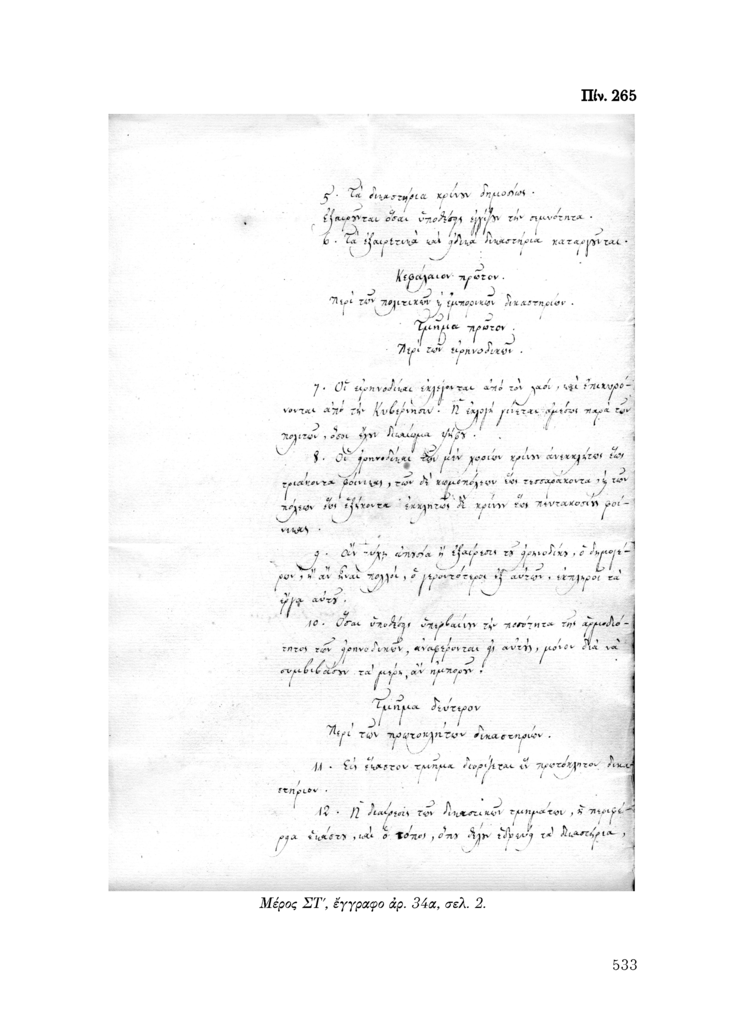 Πίν. 265
5. Τὰ δικαστήρια κρίνουν δημοσίως.
ἐξαιροῦνται ὅσαι ὑποθέσεις ἐγγίζουν τὴν σεμνότητα.
6. Τὰ ἐξαιρετικὰ καὶ εἰδικὰ δικαστήρια καταργοῦνται.
Κεφάλαιον πρῶτον.
Περὶ τῶν πολιτικῶν καὶ ἐμπορικῶν δικαστηρίων.
Τμῆμα πρῶτον.
Περὶ τῶν εἰρηνοδικῶν.
7. Οἱ εἰρηνοδίκαι ἐκλέγονται ἀπὸ τὸν λαὸν, καὶ ἐπικυρό-
νονται ἀπὸ τὴν Κυβέρνησιν. Ἡ ἐκλογὴ γίνεται ἀμέσως παρὰ τῶν
πολιτῶν, ὅσοι ἔχουν δικαίωμα ψήφου.
8. Οἱ εἰρηνοδίκαι τῶν μὲν χωρίων κρίνουν ἀνεκκλήτως ἕως
τριάκοντα φοίνικας, τῶν δὲ κωμοπόλεων ἕως τεσσαράκοντα, καὶ τῶν
πόλεων ἕως ἑξήκοντα· ἐκκλητῶς δὲ κρίνουν ἕως πεντακοσίους φοί-
νικας.
9. Ἂν τύχῃ ἀπουσία ἢ ἐξαίρεσις τοῦ εἰρηνοδίκου, ὁ δημογέ-
ρων, ἢ ἂν ἦναι πολλοὶ, ὁ γεροντότερος ἐξ αὐτῶν, ἐκπληροῖ τὰ
ἔργα αὐτοῦ.
10. Ὅσαι ὑποθέσεις ὑπερβαίνουν τὴν ποσότητα τῆς ἁρμοδιό-
τητος τῶν εἰρηνοδικῶν, ἀναφέρονται εἰς αὐτοὺς, μόνον διὰ νὰ
συμβιβάσουν τὰ μέρη, ἂν ἠμποροῦν.
Τμῆμα δεύτερον
Περὶ τῶν πρωτοκλήτων δικαστηρίων.
11. Εἰς ἕκαστον τμῆμα διορίζεται ἓν πρωτόκλητον δικα-
στήριον.
12. Ἡ διαίρεσις τῶν δικαστικῶν τμημάτων, ἡ περιφέ-
ρεια ἑκάστου, καὶ ὁ τόπος, ὅπου θέλουν ἑδρεύει τὰ δικαστήρια,
Μέρος ΣΤ', ἔγγραφο ἀρ. 34α, σελ. 2.
533